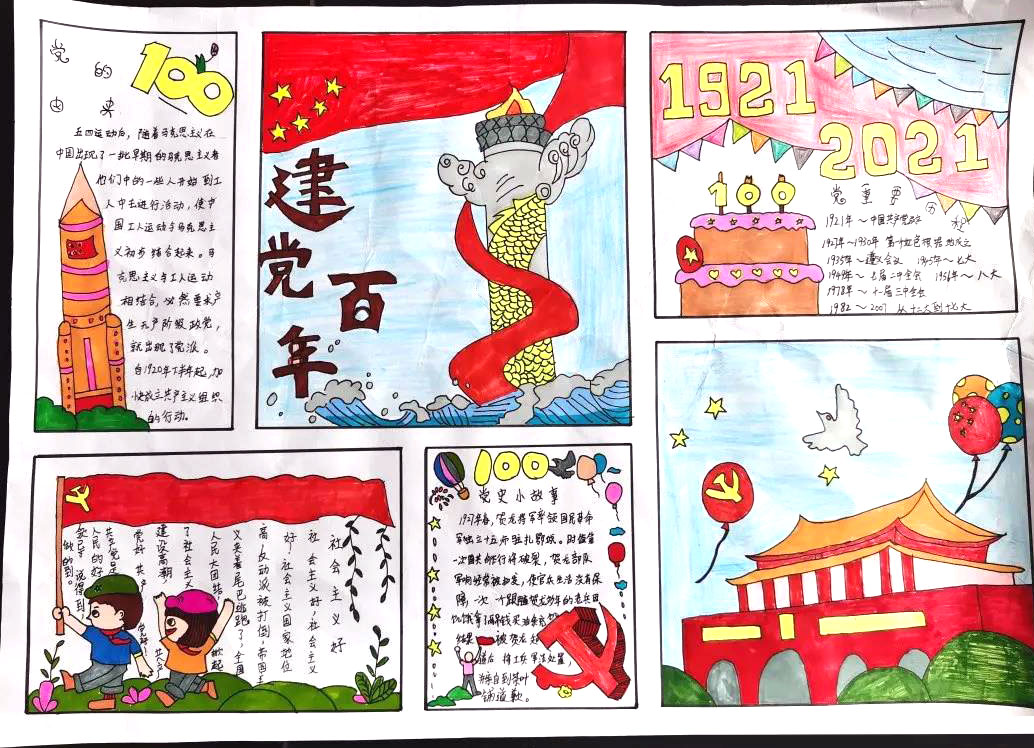 党的
由来
100
五四运动后，随着马克思主义在
中国出现了一批早期的马克思主义者
他们中的一些人开始到工
人中去进行活动，使中
国工人运动与马克思主
义初步结合起来。马
克思主义与工人运动
相结合，必然要求产
生无产阶级政党，
就出现了党派。
自1920年下半年起，加
快成立共产主义组织
的行动。
建党百年
1921
2021
100
党重要历
1921年～中国共产党成立
1927年～1930年
1935年～遵义会议 1945年～七大
1949年～七届二中全会 1956年～八大
1978年～十一届三中全会
1982～2007 从十二大到十七大
社会主义好
社会主义好 社会主义
好！社会主义国家地位
高，反动派被打倒，帝国主
义夹着尾巴逃跑了，全国
人民大团结，掀起
了社会主义
建设高潮
党好 共产
共产党是
人民的好
说得到
做的到。
100
党史小故事
1927年春，贺龙将军率领国民革命
军独立十五师驻扎鄂城。时值第
一次国共合作行将破裂，贺龙部队
军饷经常被扣发，使官兵生活没有保
障，一次，一个跟随贺龙多年的老兵
结果 被贺龙
随后 将士兵军法处置，
并亲自到茶叶
铺道歉。